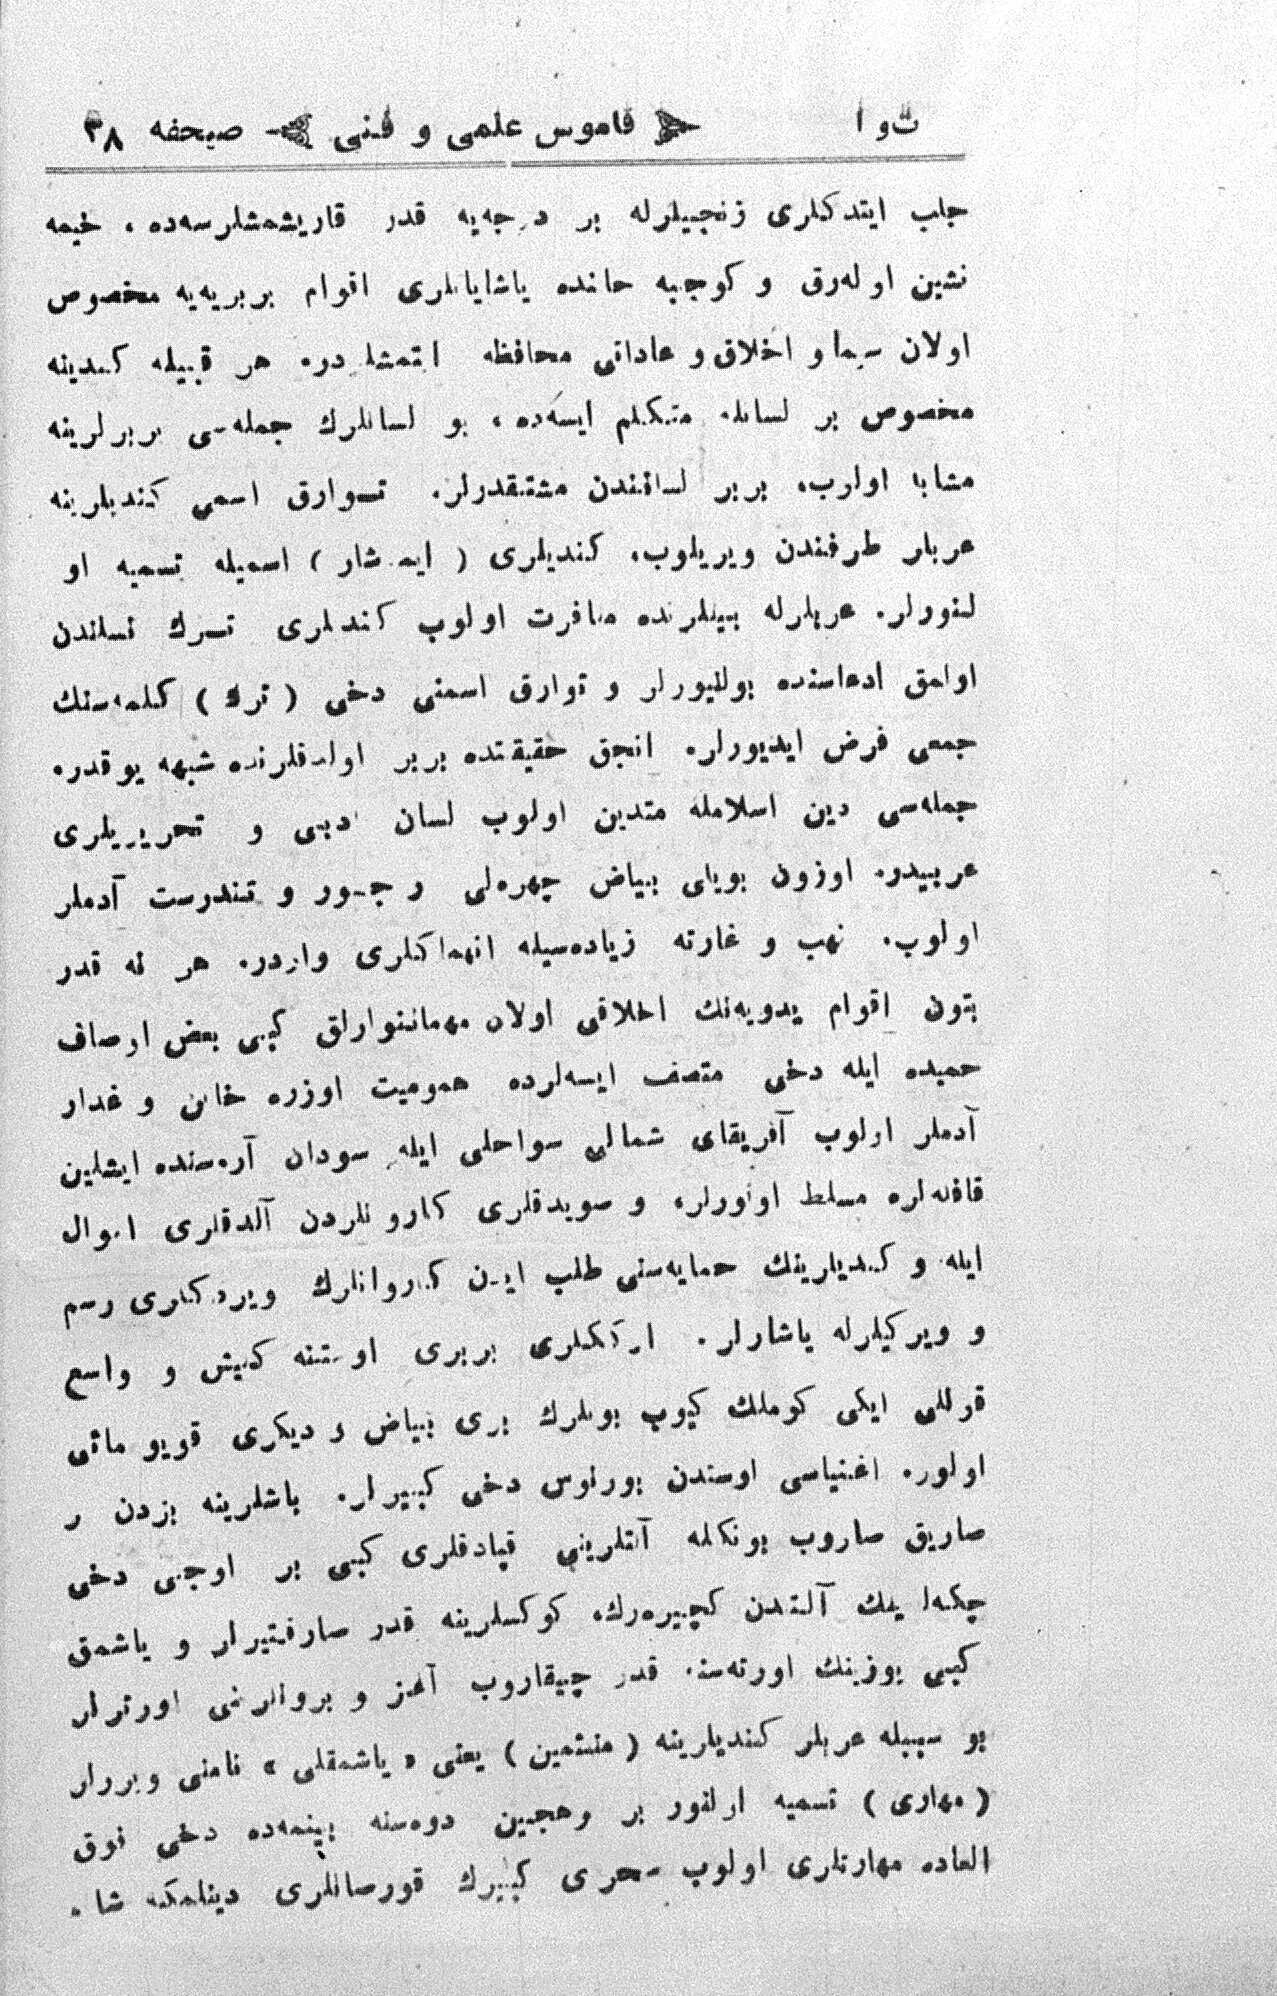 ت و ا قاموس علمی و فنی صحیفه ٣٨
جلب ایتدکلری زنجیلرله بر درجه‌یه قدر قاریشمشلرسه‌ده ، خیمه
نشین اوله‌رق و کوچبه حالنده یاشایانلری اقوام بربریه‌یه مخصوص
اولان سیما و اخلاق و عاداتی محافظه ایتمشلردر. هر قبیله کندینه
مخصوص بر لسانله متکلم ایسه‌ده ، بو لسانلرك جمله‌سی بربرلرینه
مشابه اولوب، بربر لسانندن مشتقدرلر. توارق اسمی کندیلرینه
عربلر طرفندن ویریلوب، کندیلری ( ایمـ شار ) اسمیله تسمیه او
لنورلر. عربلرله بینلرنده منافرت اولوب کندیلری ترك نسلندن
اولمق ادعاسنده بولنیورلر و توارق اسمنی دخی ( ترك ) کلمه‌سنك
جمعی فرض ایدیورلر. انجق حقیقتده بربر اولدقلرنده شبهه یوقدر.
جمله‌سی دین اسلامله متدین اولوب لسان ادبی و تحریریلری
عربیدر. اوزون بویلی بیاض چهره‌لی و جسور و تندرست آدملر
اولوب. نهب و غارته زیاده‌سیله انهماکلری واردر. هر نه قدر
بتون اقوام بدویه‌نك اخلاقی اولان مهماننوازلق کبی بعض اوصاف
حمیده ایله دخی متصف ایسه‌لرده عمومیت اوزره خائن و غدار
آدملر اولوب آفریقای شمالی سواحلی ایله سودان آره‌سنده ایشلین
قافله‌لره مسلط اولورلر، و صویدقلری کاروانلردن آلدقلری اموال
ایله و کندیلرینك حمایه‌سنی طلب ایدن کاروانلرك ویردکلری رسم
و ویرکیلرله یاشارلر. ارککلری بربری اوستنه کنیش و واسع
قوللی ایکی کوملك کیوب بونلرك بری بیاض و دیکری قویو مائی
اولور. اغنیاسی اوستدن بورنوس دخی کییرلر. باشلرینه بزدن بر
صاریق صاروب بونکله آلنلرینی قپادقلری کبی بر اوجنی دخی
چکه‌لرینك آلتندن کچیره‌رك، کوکسلرینه قدر صارقیتیرلر و یاشمق
کبی یوزینك اورته‌سنه قدر چیقاروب آغز و برونلرنی اورترلر
بو سببله عربلر کندیلرینه ( متلثمین ) یعنی « یاشمقلی » نامنی ویررلر
( مهاری ) تسمیه اولنور بر وهجین دوه‌سنه بینمه‌ده دخی فوق
العاده مهارتلری اولوب صحرای کبیرك قورصانلری دینلمکه شا .